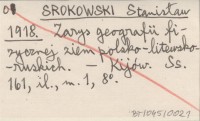 SROKOWSKI Stanisław
1918. Zarys geografii fi-
zycznej ziem polsko-litewsko-
-ruskich. — Kijów. Ss.
161, il., m. 1, 8°.
BP/104S/0021